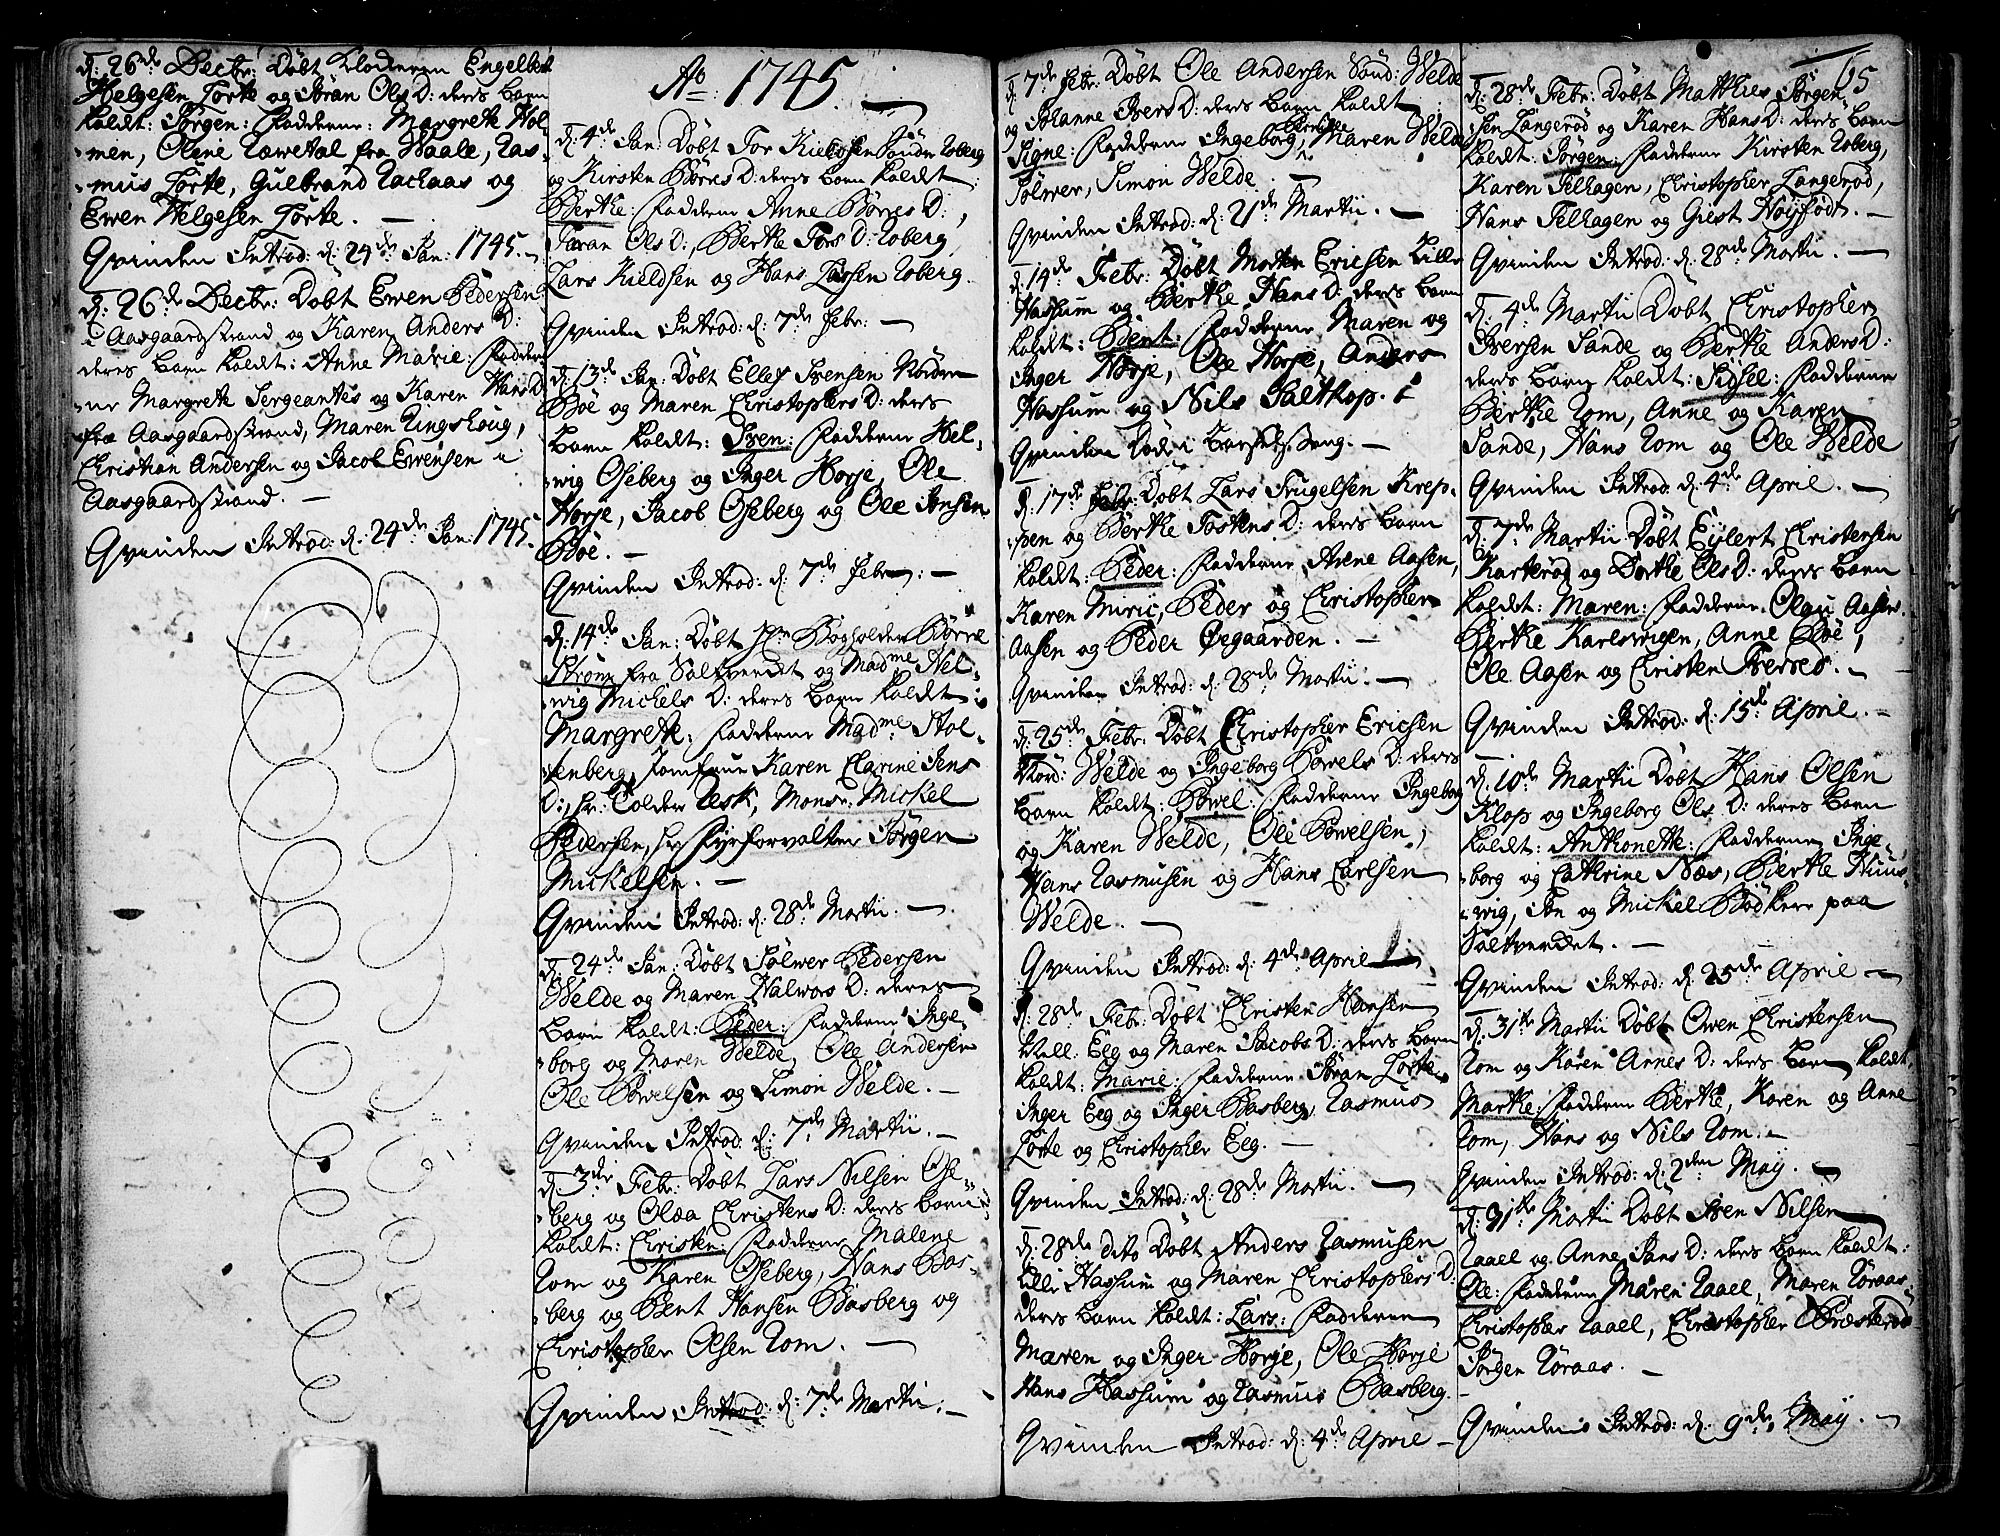 d: 26de Decbr: Döbt Klokkeren Engelbret
Helgesen Torte og Jöran Ols D: deres barn
kaldt: Jörgen: Fadderne: Margrete Hol-
men, Olene Rævetal fra Waale, Ras-
mus Torte, Gulbrand Rachaas og
Ewen Helgesen Torte. —
Qvinden Introd: d: 24de Jan: 1745. –
d: 26de Decbr: Döbt Ewen Pedersen
i Aasgaardstrand og Karen Anders D:
deres barn kaldt: Anne Marie: Fadder-
ne Margrete Sergeantes og Karen Hans D
fra Aasgaardstrand, Maren Ringshoug,
Christian Andersen og Jacob Ewensen i
Aasgaardstrand. —
Qvinden Introd: d: 24de Jan: 1745.
Ao: 1745. —
d: 4de Jan: Döbt Tor Kieldsen Söndre Roberg
og Kirsten Börres D: deres barn kaldt:
Berthe: Fadderne Anne Börres D:,
Taran Ols D:, Berthe Tors D: Roberg,
Lars Kieldsen og Hans Larsen Roberg.
Qvinden Introd: d: 7de Febr: —
d: 13de Jan: Döbt Ellef Svensen Nordre
Böe og Maren Christophers D: deres
barn kaldt: Sven: Fadderne Hel-
wig Oseberg og Inger Horje, Ole
Horje, Jacob Oseberg og Ole Jensen
Böe. —
Qvinden Introd: d: 7de Febr: —
d: 14de Jan: Döbt Hr Bogholder Börre
Ström fra Saltverket og Madme Hel-
wig Michels D: deres barn kaldt:
Margrete: Fadderne Madme Stol-
tenberg, Jomfrue Karen Clarine Jens
D:, hr: Tolder Resk, Monsr: Mickel
Pedersen, hr Fyrforvalter Jörgen
Mickelsen. —
Qvinden Introd: d: 28de Martii. —
d: 24de Jan: Döbt Sölwer Pedersen
Welde og Maren Halwors D: deres
barn kaldt: Peder: Fadderne Inge-
borg og Maren Welde, Ole Andersen
Ole Powelsen og Simon Welde. —
Qvinden Introd: d: 7de Martii. —
d: 3de Febr: Döbt Lars Nilsen Ose-
berg og Olea Christens D: deres barn
kaldt: Christen: Fadderne Malene
Rom og Karen Oseberg, Hans Bas-
berg og Bent Hansen Basberg og
Christopher Olsen Rom. —
Qvinden Introd: d: 7de Martii. —
d: 7de Febr: Döbt Ole Andersen Sönd: Welde
og Johanne Ivers D: deres barn kaldt:
Signe: Fadderne Ingeborg, Maren Welde
Sölwer, Simon Welde. —
Qvinden Introd: d: 21de Martii. —
d: 14de Febr: Döbt Morten Ericsen Lille
Hassum og Berthe Hans D: deres barn
kaldt: Bent: Fadderne Maren og
Inger Horje, Ole Horje, Anders
Hassum og Nils Saltkop.
Qvinden döde i barselseng. —
d: 17de Febr: Döbt Lars Trugelsen Krep-
pen og Berthe Tostens D: deres barn
kaldt: Peder: Fadderne Arene Aasen,
Karen Myrie, Peder og Christopher
Aasen og Peder Öegaarden. —
Qvinden Introd: d: 28de Martii. —
d: 25de Febr: Döbt Christopher Ericsen
Nord: Welde og Ingeborg Powels D: deres
barn kaldt: Powel: Fadderne Ingeborg
og Karen Welde, Ole Powelsen,
Hans Rasmusen og Hans Carlsen
Welde. —
Qvinden Introd: d: 4de April —
d: 28de Febr: Döbt Christen Hansen
Well: Eeg og Maren Jacobs D: deres barn
kaldt: Marie: Fadderne Jöran Torte,
Inger Eeg og Inger Basberg, Rasmus
Torte og Christopher Eeg. —
Qvinden Introd: d: 28de Martii. —
d: 28de dito Döbt Anders Rasmusen
Lille Hassum og Maren Christophers D:
deres barn kaldt: Lars: Fadderne
Maren og Inger Horje, Ole Horje
Hans Hassum og Rasmus Basberg.
Qvinden Introd: d: 4de April —
65
d: 28de Febr: Döbt Matthies Jörgen-
sen Langeröd og Karen Hans D: deres barn
kaldt: Jörgen: Fadderne Kirsten Roberg,
Karen Selhagen, Christopher Langeröd,
Hans Selhagen og Giest Höysfödt. —
Qvinden Introd: d: 28de Martii. —
d: 4de Martii Döbt Christopher
Iversen Sande og Berthe Anders D:
deres barn kaldt: Sidsel: Fadderne
Berthe Rom, Anne og Karen
Sande, Hans Rom og Ole Welde
Qvinden Introd: d: 4de April. —
d: 7de Martii Döbt Eylert Christensen
Karteröd og Dorthe Ols D: deres barn
kaldt: Maren: Fadderne Olau Aasen
Berthe Karlswigen, Anne Böe,
Ole Aasen og Christen Tversed. —
Qvinden Introd: d: 15de April. —
d: 10de Martii Döbt Hans Olsen
Klop og Ingeborg Ols D: deres barn
kaldt: Anthonette: Fadderne Inge-
borg og Cathrine Næs, Berthe Huus-
wig, Jon og Mickel Bödkere paa
Saltverket. —
Qvinden Introd: d: 25de April —
d: 31te Martii Döbt Owen Christensen
Rom og Karen Arnes D: deres barn kaldt:
Marthe: Fadderne Berthe, Karen og Anne
Rom, Hans og Nils Rom. —
Qvinden Introd: d: 2den May. —
d: 31te Martii Döbt Sven Nilsen
Raael og Anne Jans D: deres barn kaldt:
Ole: Fadderne Maren Raael, Maren Röraas
Christopher Raael, Christopher Præsteröd
Jörgen Röraas. —
Qvinden Introd: d: 9de May. —